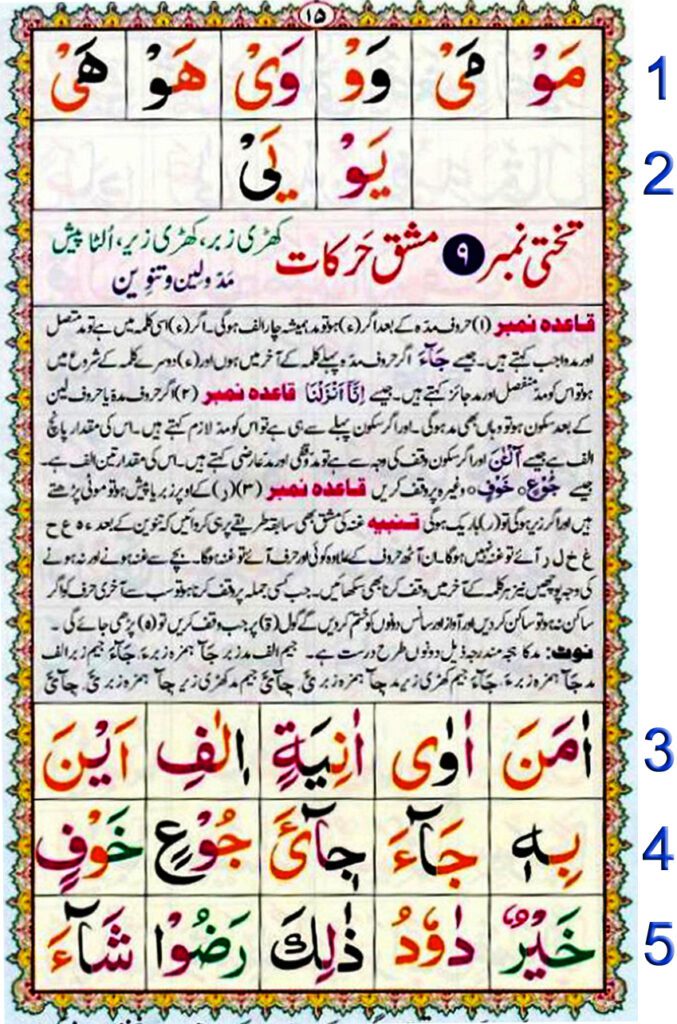 ۱۵
مَوْ مَیْ وَوْ وَیْ هَوْ هَیْ 1
یَوْ یَیْ 2
تختی نمبر ۹ مشق حَرکات کھڑی زبر، کھڑی زیر، اُلٹا پیش
مَدّ و لین و تنوین
قاعدہ نمبر (۱) حروف مدّہ کے بعد اگر (ء) ہو تو مد ہمیشہ چار الف ہوگی۔ اگر (ء) اسی کلمہ میں ہے تو مد متصل
اور مد واجب کہتے ہیں۔ جیسے جَآءَ اگر حروف مدّہ پہلے کلمہ کے آخر میں ہوں اور (ء) دوسرے کلمہ کے شروع میں
ہو تو اس کو مد منفصل اور مد جائز کہتے ہیں۔ جیسے اِنَّآ اَنْزَلْنَا قاعدہ نمبر (۲) اگر حروف مدّہ یا حروف لین
کے بعد سکون ہو تو وہاں بھی مد ہوگی۔ اور اگر سکون پہلے سے ہی ہے تو اس کو مدّ لازم کہتے ہیں۔ اس کی مقدار پانچ
الف ہے جیسے آٰلْـٰٔنَ اور اگر سکون وقف کی وجہ سے ہے تو مد وقفی اور مد عارضی کہتے ہیں۔ اس کی مقدار تین الف ہے۔
جیسے جُوْعٍ۔ خَوْفٍ۔ وغیرہ پر وقف کریں قاعدہ نمبر (۳) (ر) کے اوپر زبر یا پیش ہو تو موٹی پڑھتے
ہیں اور اگر زیر ہوگی تو (ر) باریک ہوگی تنبیہ غنہ کی مشق بھی سابقہ طریقے پر ہی کروائیں کہ تنوین کے بعد ء ہ ع ح
غ خ ل ر آئے تو غنہ نہیں ہوگا۔ ان آٹھ حروف کے علاوہ کوئی اور حرف آئے تو غنہ ہوگا۔ بچے سے غنہ ہونے اور نہ ہونے
کی وجہ پوچھیں نیز ہر کلمہ کے آخر میں وقف کرنا بھی سکھائیں۔ جب کسی جملہ پر وقف کرنا ہو تو سب سے آخری حرف کو اگر
ساکن نہ ہو تو ساکن کردیں اور آواز اور سانس دونوں کو ختم کردیں گے گول (ۃ) پر جب وقف کریں تو (ہ) پڑھی جائے گی۔
نوٹ: مد کا ہجہ مندرجہ ذیل دونوں طرح درست ہے۔ جیم الف مد زبر جَآ ہمزہ زبر ءَ، جَآءَ جیم زبر الف
مد جَآ ہمزہ زبر ءَ، جَآءَ جیم کھڑی زیر مد جِآ ہمزہ زبر ئَ، جِآئَ جیم مد کھڑی زیر جِآ ہمزہ زبر ئَ، جِآئَ
اٰمَنَ اٰوٰی اٰنِیَةٍ اِلٰفِ اَیْنَ 3
بِهٖ جَآءَ جِآیْٓءَ جُوْعٍ خَوْفٍ 4
خَیْرٌ دَاوٗدُ ذٰلِكَ رَضُوْا شَآءَ 5